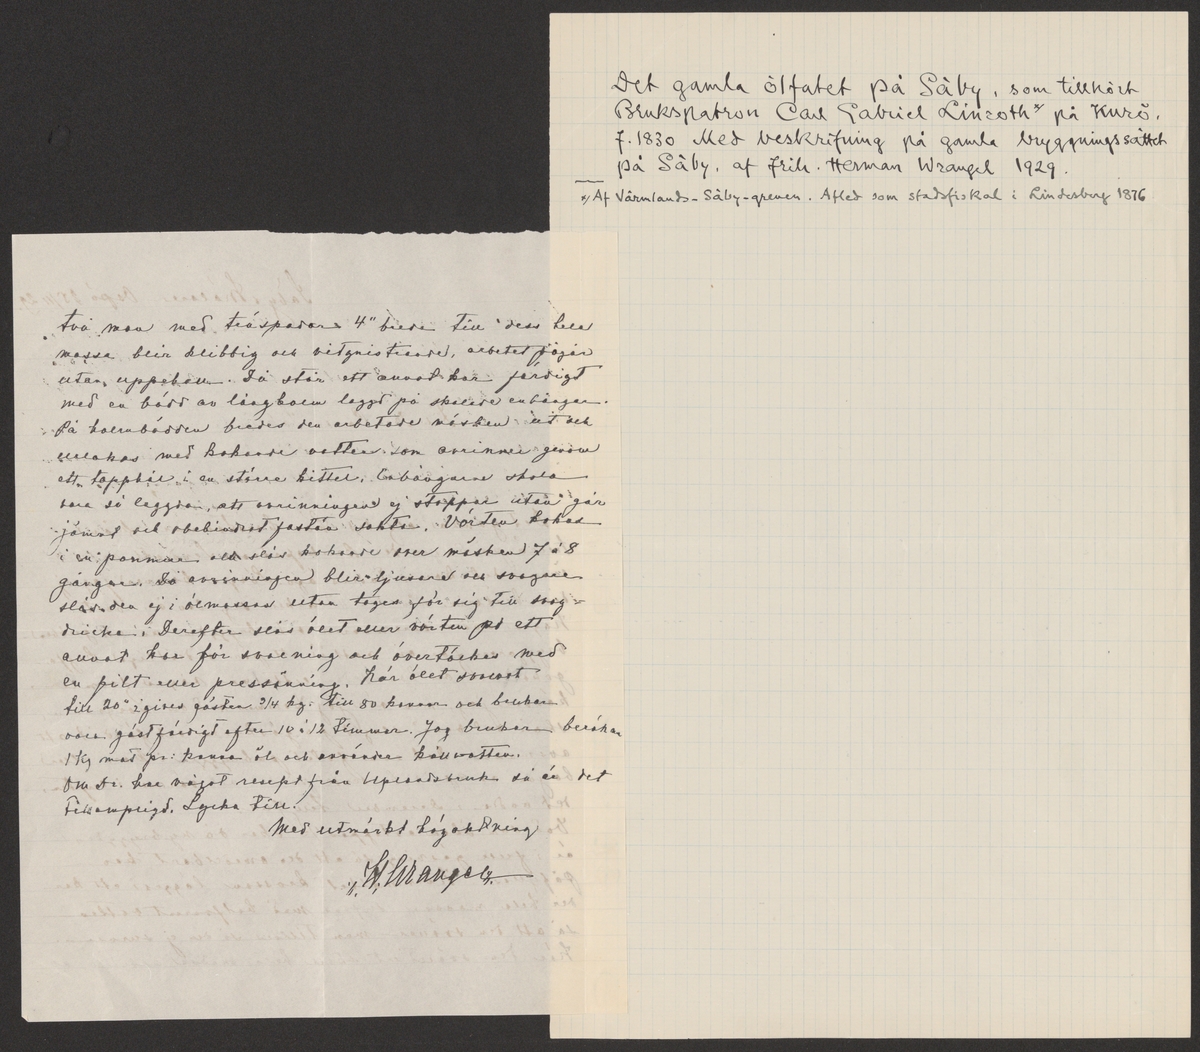 Det gamla ölfatet på Säby, som tillhört
Brukspatron Carl Gabriel Linroth x/ på Kurö,
f. 1830 Med beskrifning på gamla bryggningssättet
på Säby, af frih. Herman Wrangel 1929.
x/ Af Värmlands-Säby-grenen. Afled som stadsfiskal i Lindesberg 1876
två man med träspadar 4" breda till dess hela
massa blir klibbig och vitgnistrande, arbetet pågår
utan uppehåll. Då står ett annat kar färdigt
med en bädd av långhalm lagd på skalade enstänger.
På halmbädden bredes den arbetade mäsken ut och
lakas med kokande vatten som avrinner genom
ett tapphål i en större kittel. Enstängerna skola
vara så lagda, att avrinningen ej stoppar utan går
jämnt och obehindrat fastän sakta. Vörten kokas
i en panna och slås kokande över mäsken 7 à 8
gånger. Då avrinningen blir ljusare och svagare
slås den ej i ölmassan utan tages för sig till svag-
dricka. Derefter slås ölet eller vörten på ett
annat kar för svalning och övertäckes med
en filt eller pressänning. När ölet svalnat
till 20° igives gästen 3/4 kg. till 80 kannor och brukar
vara gästfärdigt efter 10 à 12 timmar. Jag brukar beräkna
1 kg malt pr: kanna öl och använder källvatten.
Om Dr. har något recept från Uplandsbruk så är det
Lycka till!
Med utmärkt högaktning
H. Wrangel